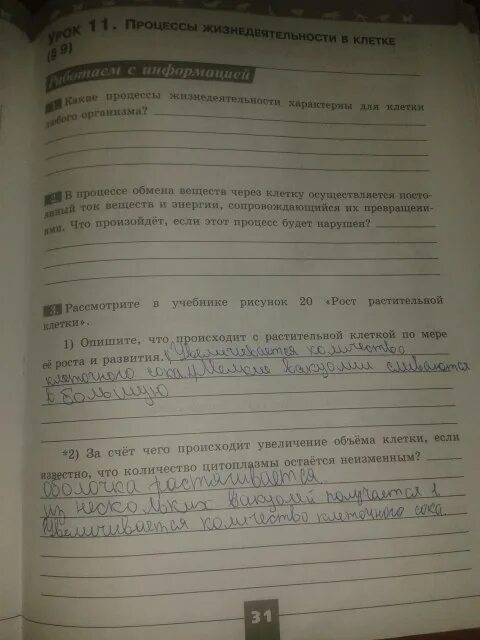 УРОК 11. ПРОЦЕССЫ ЖИЗНЕДЕЯТЕЛЬНОСТИ В КЛЕТКЕ
(§ 9)
Работаем с информацией
1. Какие процессы жизнедеятельности характерны для клетки
любого организма?
2. В процессе обмена веществ через клетку осуществляется посто-
янный ток веществ и энергии, сопровождающийся их превращени-
ями. Что произойдёт, если этот процесс будет нарушен?
3. Рассмотрите в учебнике рисунок 20 «Рост растительной
клетки».
1) Опишите, что происходит с растительной клеткой по мере
её роста и развития. Увеличивается количество
клеточного сока. Мелкие вакуоли сливаются
в большую
*2) За счёт чего происходит увеличение объёма клетки, если
известно, что количество цитоплазмы остаётся неизменным?
оболочка растягивается
из нескольких вакуолей получается 1
Увеличивается количество клеточного сока.
31